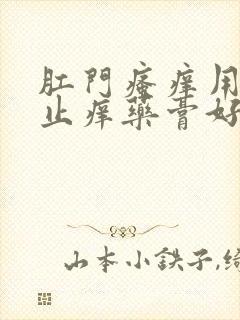 肛門瘙癢用
止癢藥膏好
山本小鉄子,綺